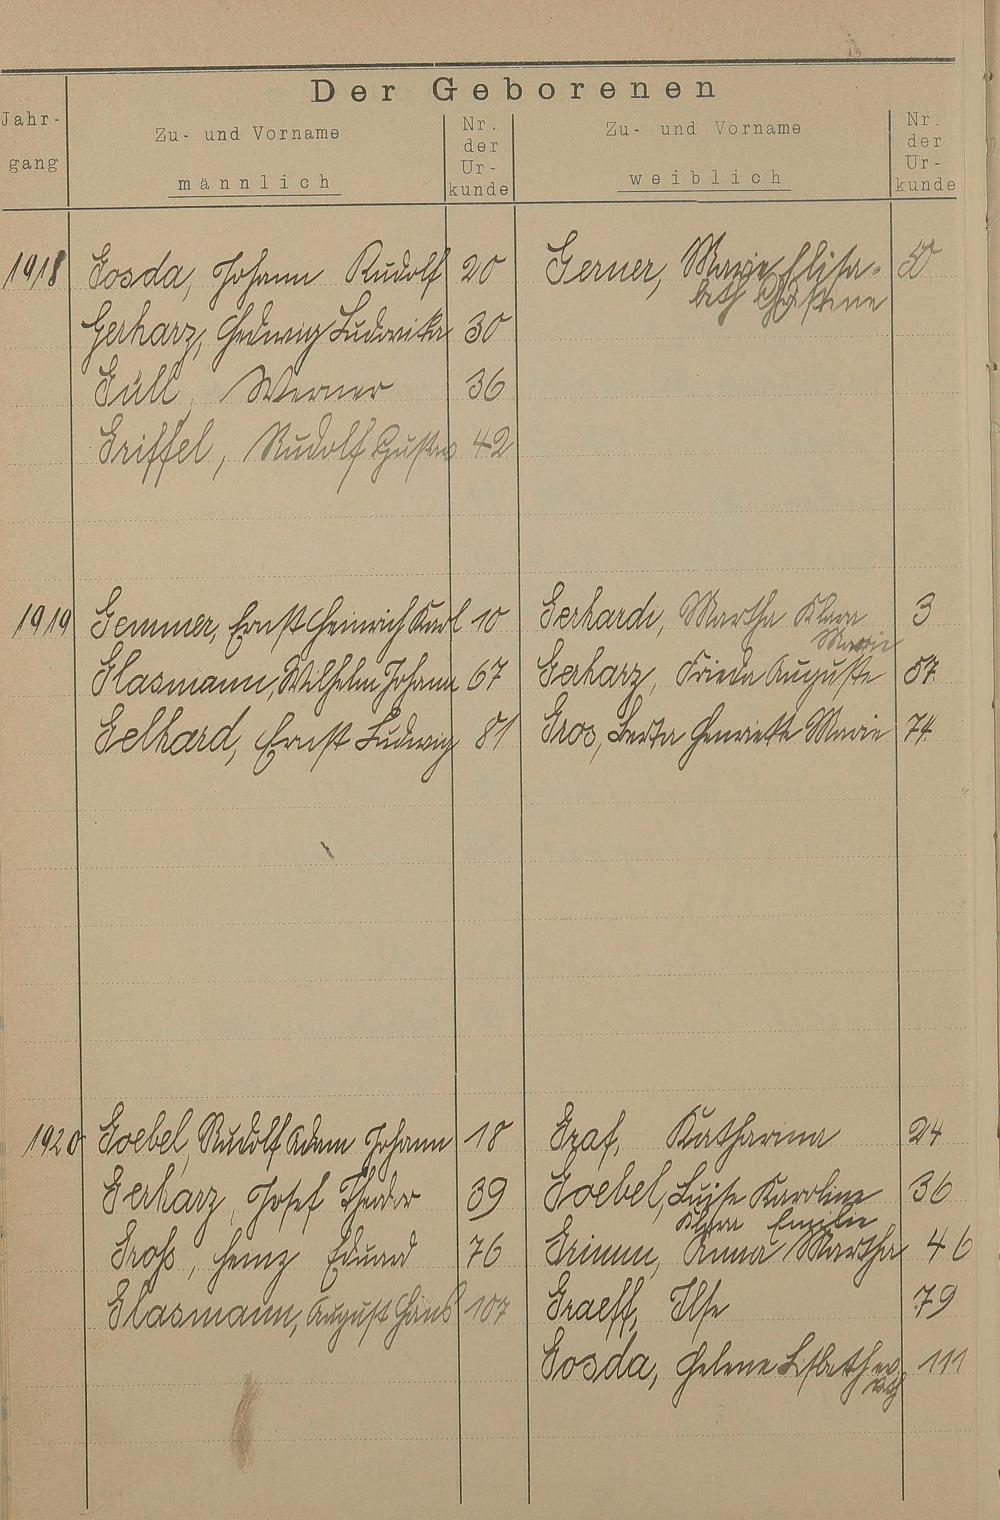 Der Geborenen
Jahr-
gang
Zu- und Vorname
männlich
Nr.
der
Ur-
kunde
Zu- und Vorname
weiblich
Nr.
der
Ur-
kunde
1918 Gosda, Johann Rudolf 20 Gerner, Marie Elisa-
beth Christine
Gerharz, Hedwig Ludovika 30
Güll, Werner 36
Griffel, Rudolf Gustav 42
1919 Gemmer, Ernst Heinrich Karl 10 Gerhardt, Martha Klara 3
Marie
Glasmann, Wilhelm Johann 67 Gerharz, Frieda Auguste 57
Gelhard, Ernst Ludwig 81 Gros, Berta Henriette Marie 74
1920 Goebel, Rudolf Adam Johann 18 Graf, Katharina 24
Gerharz, Josef Theodor 39 Goebel, Luise Karoline 36
Klara Emilie
Groß, Heinz Eduard 76 Grimm, Anna Martha 46
Glasmann, August Hans 107 Graeff, Ilse 79
Gosda, Helene Lisbeth 111